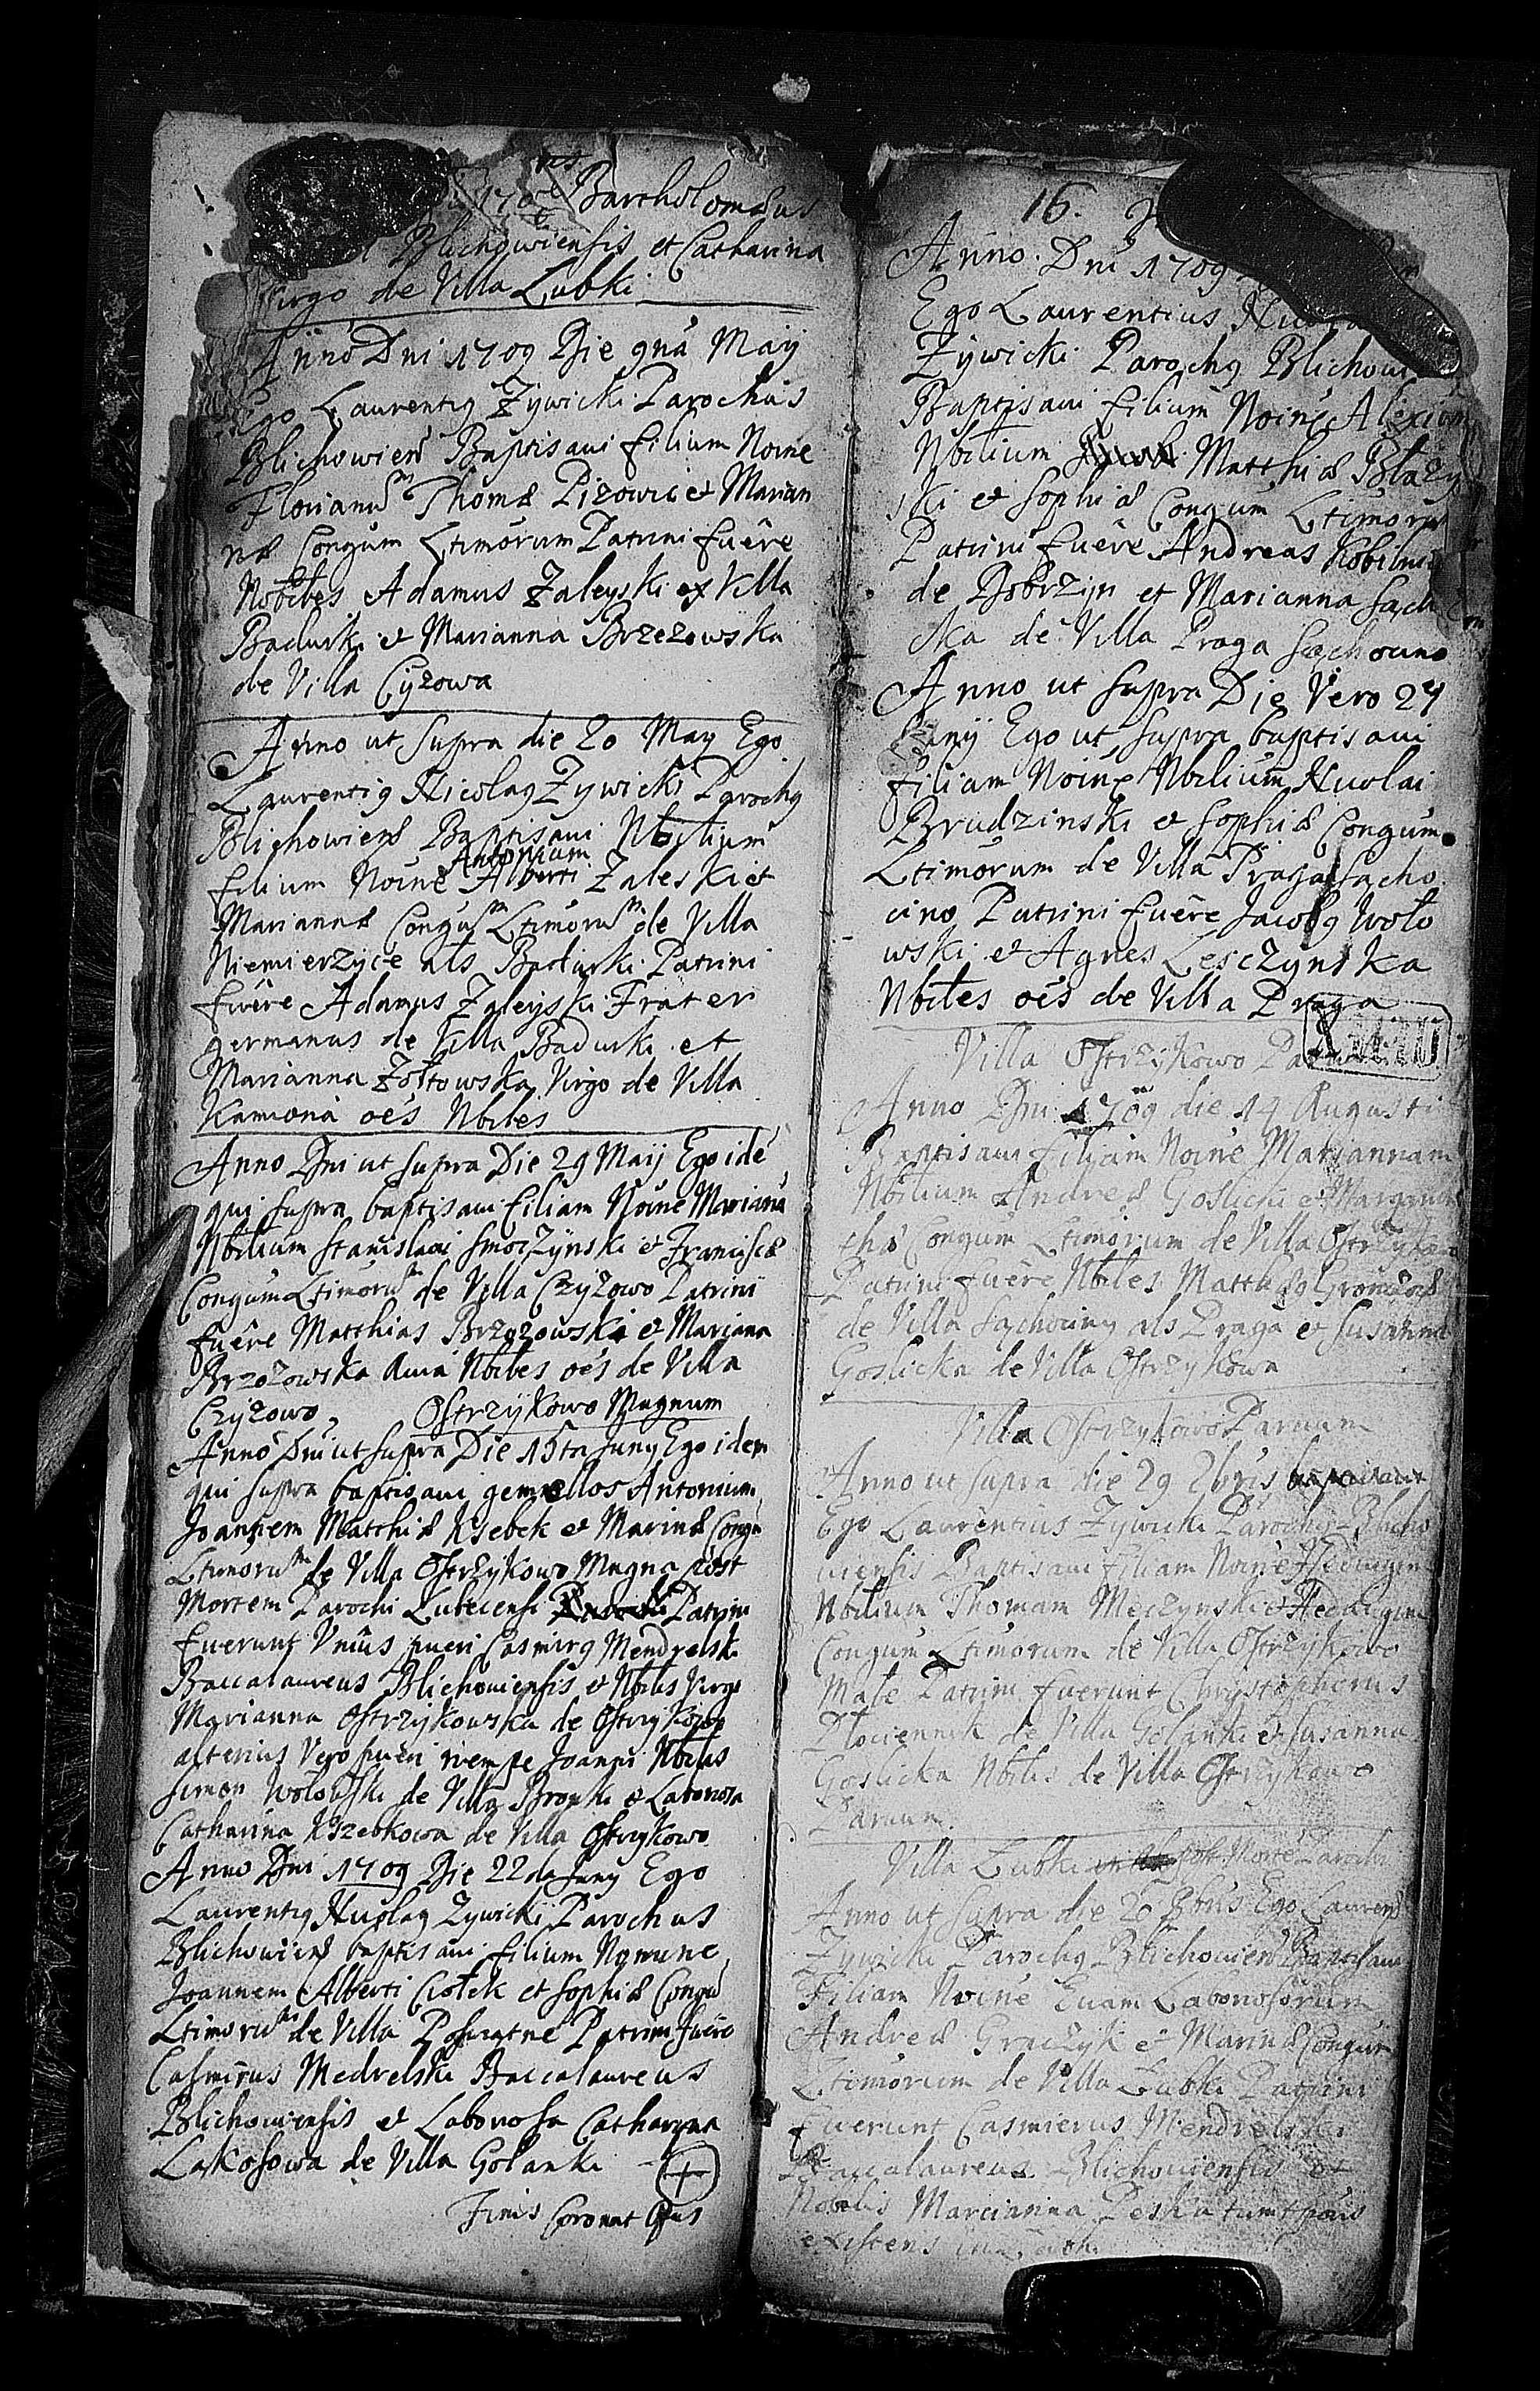 Bartholomæus
Blichowiensis et Catharina
Virgo de Villa Lubki
Anno Dni 1709 Die 9nâ Maij
Ego Laurentig Zÿwicki Parochus
Blichowiens Baptisaui filium Noine
Florianũ Thomæ Pizowic et Marian
næ Congum Ltimorum Patrini fuêre
Nobiles Adamus Zaleÿski ex Villa
Badurki et Marianna Brzezowska
de Villa Cÿzowa
Anno ut Supra die 20 May Ego
Laurentig Nicolag Zÿwicki Parochg
Blichowiens Baptisaui Nbilium
Antonium
filium Noine Alberti Zaleski et
Mariannæ Congum Ltimorum de Villa
Niemierzÿce als Badurki Patrini
fuêre Adamus Zaleÿski Frater
germanus de Villa Badurki et
Marianna Zołtowska Virgo de Villa
Kamiona oẽs Nbiles
Anno Dni ut Supra Die 29 Maij Ego idẽ
qui Supra baptisaui filiam Noine Marianã
Nbilium Stanislaui Smoczÿnski et Franciscæ
Congum Ltimorum de Villa Czÿzowo Patrini
fuêre Matthias Brzozowski et Mariana
Brzozowska Nbiles oẽs de Villa
Czÿzowo Ostrzÿkowo Magnum
Anno Dni ut Supra Die 15ta Junÿ Ego idem
qui Supra baptisaui gemellos Antonium
Joannem Matthiæ Ksebek et Marinæ Congu
Ltimorum de Villa Ostrzÿkowo Magna post
Mortem Parochi Lubecensi Patrini
fuerunt Unius pueri Casmirg Mendrelski
Baccalaureus Blichouiensis et Nbilis Virgo
Marianna Ostrzÿkowska de Ostrzykowo
alterius Vero pueri nempe Joanni Nbilis
Simon Wołowski de Villa Bronki et Laboriosa
Catharina Kszebkowa de Villa Ostrzykowo
Anno Dni 1709 Die 22da Junÿ Ego
Laurentig Nicolag Zÿwicki Parochus
Blichowiens baptisaui filium Nomine
Joannem Alberti Ciołek et Sophiæ Congu
Ltimorum de Villa Patrini fuere
Casmirus Medrelski Baccalaureus
Blichouiensis et Laboriosa Catharÿna
Łakosowa de Villa Golanki
Finis Coronat Opus
16.
Anno Dni 1709
Ego Laurentius
Zÿwicki Parochg Blichowi
Baptisaui filium Noine Alexium
Nbilium Matthiæ Błazÿ
ski et Sophiæ Congum Ltimorum
Patrini fuêre Andreas
de Dobrzÿn et Marianna Sąch
cka de Villa Praga Sąchouno
Anno ut Supra Die Vero 24
Junÿ Ego ut Supra baptisaui
filiam Noine Nbilium Nicolai
Brudzinski et Sophiæ Congum
Ltimorum de Villa Praga Sącho
cino Patrini fuêre Jacobg Woło
wski et Agnes Lesczÿnska
Nbiles oẽs de Villa Praga
Villa Ostrzÿkowo
Anno Dni 1709 die 14 Augusti
Baptisaui filiam Noine Mariannam
Nbilium Andreæ Goslicki et Margare
thæ Congum Ltimorum de Villa Ostrzykowo
Patrini fuêre Nbiles Matthæg
de Villa Sąchocinÿ als Praga et Susanna
Goslicka de Villa Ostrzÿkowa
Villa Ostrzÿkowo Paruum
Anno ut Supra die 29
Ego Laurentius Zÿwicki Parochg Blicho
uiensis Baptisaui filiam Noine Heduigim
Nbilium Thomam Męczÿnski et Heduigim
Congum Ltimorum de Villa Ostrzÿkowo
Małe Patrini fuerunt Chrystopherus
Płociennik de Villa Golanki et Susanna
Goslicka Nbilis de Villa Ostrzÿkowo
Paruum.
Villa Lubki post Morte Parochi
Anno ut Supra die 20 Ego Laurens
Zywicki Parochg Blichowiens Baptisaui
Filiam Noine Euam Laboriosorum
Andreæ Graczÿk et Marinæ Congum
Ltimorum de Villa Lubki Patrini
fuerunt Casmierus Mendrelski
Baccalaureus Blichouiensis et
Nobilis Marcianna
existens